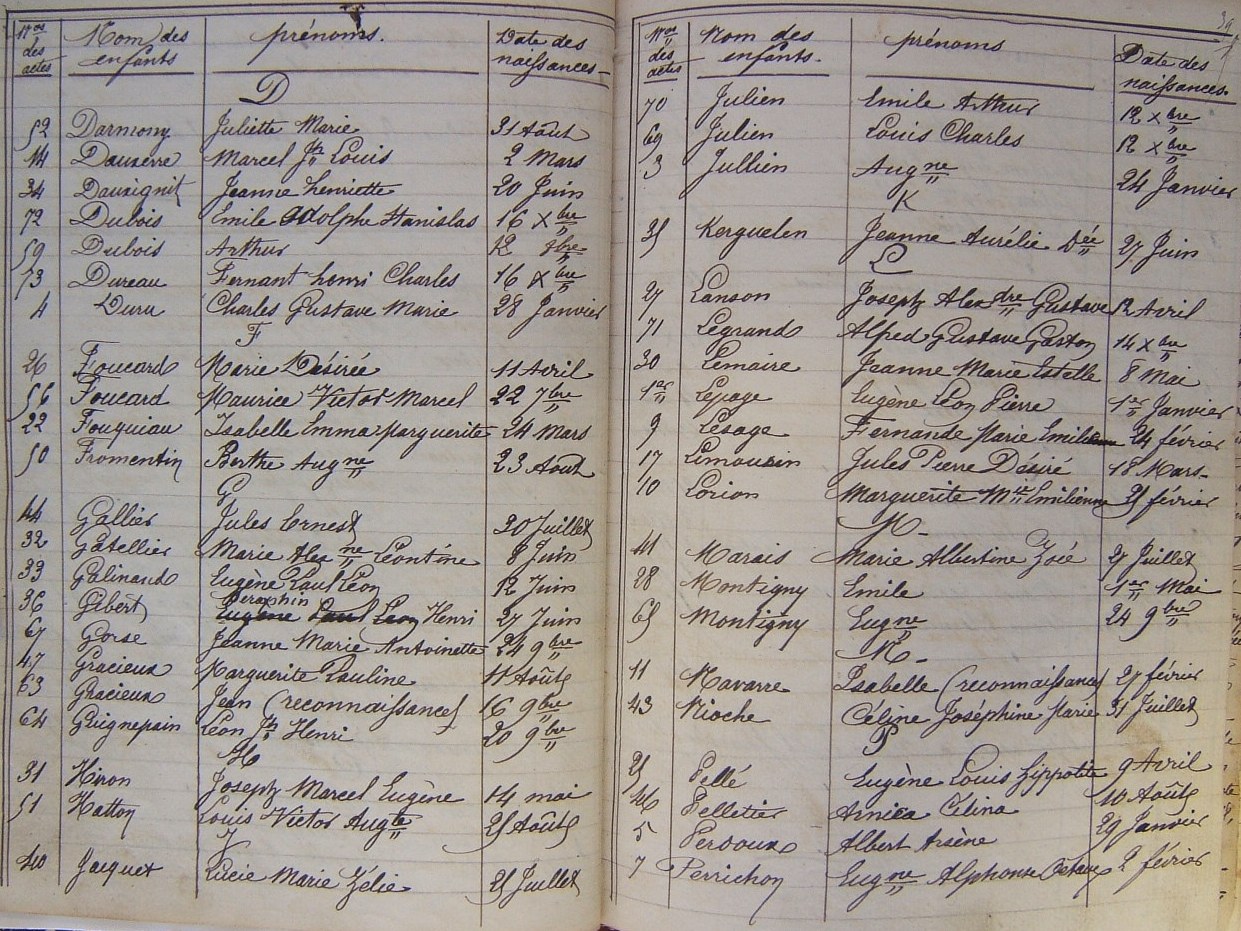 Nos des actes Nom des enfants prénoms. Date des naissances
D
52 Darmony Juliette Marie 31 Août
14 Dauxerre Marcel Jh Louis 2 Mars
34 Jeanne henriette 20 Juin
72 Dubois Emile Adolphe Stanislas 16 Xbre
59 Dubois Arthur 12
73 Dureau Fernant henri Charles 16 Xbre
4 Duru Charles Gustave Marie 28 Janvier
F
26 Foucard Marie Désirée 11 Avril
56 Foucard Maurice Victor Marcel 22 7bre
22 Fouquiau Isabelle Emma Marguerite 24 Mars
50 Fromentin Berthe Augne 23 Aout
G
44 Gallier Jules Ernest 30 Juillet
32 Gatellier Marie Alexne Léontine 8 Juin
33 Galinand Eugène Paul Léon 12 Juin
Séraphin
36 Gibert Eugène Paul Leon Henri 27 Juin
67 Gorse Jeanne Marie Antoinette 24 9bre
47 Gracieux Marguerite Pauline 11 Août
63 Gracieux Jean (reconnaissance) 16 9bre
64 Guignepain Léon Jh Henri 20 9bre
H
31 Hiron Joseph Marcel Eugène 14 mai
51 Hatton Louis Victor Augte 25 Août
J
40 Jacquet Lucie Marie Zélie 25 Juillet
39
Nos des actes Nom des enfants. prénoms Date des naissances.
70 Julien Emile Arthur 12 Xbre
69 Julien Louis Charles 12 Xbre
3 Jullien Augne 24 Janvier
K
35 Kerguelen Jeanne Aurélie Dée 27 Juin
L
27 Lanson Joseph Alexdre Gustave 12 Avril
71 Legrand Alfred Gustave Gaston 14 Xbre
30 Lemaire Jeanne Marie Estelle 8 Mai
1er Lepage Eugène Léon Pierre 1er Janvier
9 Lesage Fernande Marie 24 février
17 Limousin Jules Pierre Désiré 18 Mars
10 Lorion Marguerite Mie Emilienne 25 février
M
41 Marais Marie Albertine Zoé 27 Juillet
28 Montigny Emile 1er Mai
65 Montigny Eugne 24 9bre
N
11 Navarre Isabelle (reconnaissance) 27 février
43 Nioche Céline Joséphine Marie 31 Juillet
P
25 Pellé Eugène Louis hippolite 9 Avril
46 Pelletier Arnica Célina 10 Août
5 Perdoux Albert Arsène 29 Janvier
7 Perrichon Eugne Alphonse Octave 2 février